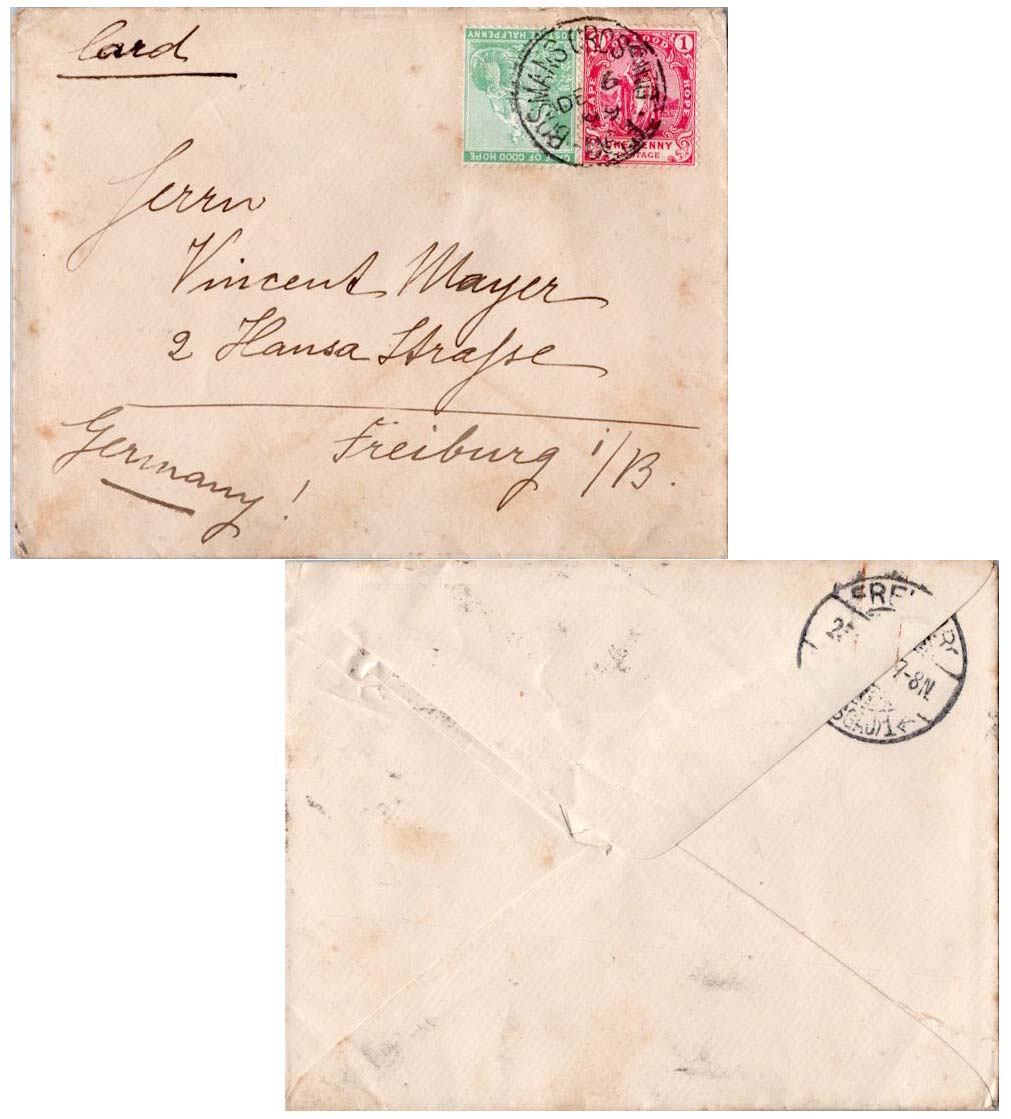 Card
POSTAGE HALFPENNY
CAPE OF GOOD HOPE
BOSMANS CROSSING
DE 6
99
1 GOOD 1
CAPE HOPE
ONE PENNY
POSTAGE
Herrn
Vincent Mayer
2 Hansa Straſse
Freiburg i/B.
Germany!
FREI
7-8N